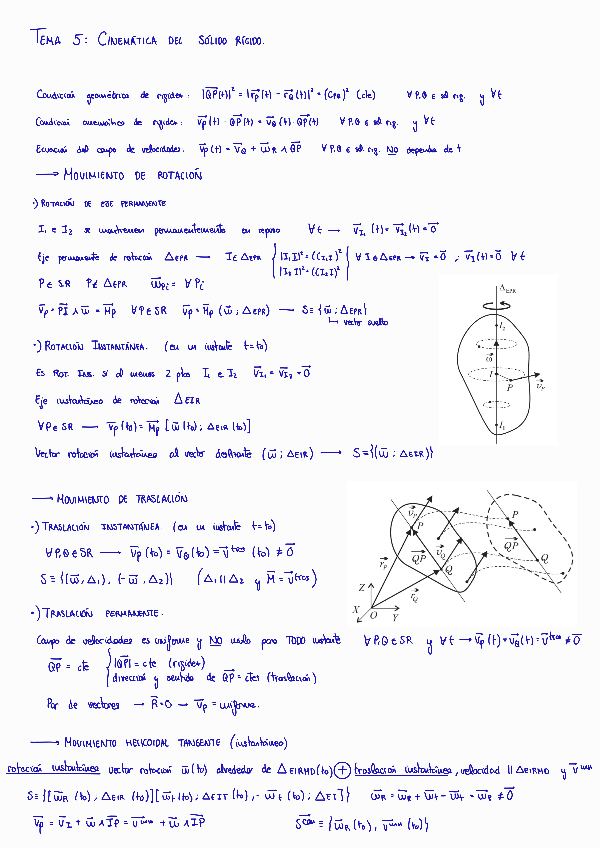 TEMA 5: CINEMÁTICA DEL SÓLIDO RÍGIDO.
Condición geométrica de rigidez: |QP(t)|² = |r⃗p(t) - r⃗Q(t)|² = (CPQ)² (cte) ∀P,Q ∈ sól rig. y ∀t
Condición cinemática de rigidez: v⃗p(t) · QP(t) = v⃗Q(t) · QP(t) ∀P,Q ∈ sól rig. y ∀t
Ecuación del campo de velocidades: v⃗p(t) = v⃗Q + ω⃗R ∧ QP ∀P,Q ∈ sól rig. NO depende de t
→ MOVIMIENTO DE ROTACIÓN
·) ROTACIÓN DE EJE PERMANENTE
I₁ e I₂ se mantienen permanentemente en reposo ∀t → v⃗I₁(t) = v⃗I₂(t) = 0⃗
Eje permanente de rotación ΔEPR — I ∈ ΔEPR { |I₁I|² = (CI₁I)² |I₂I|² = (CI₂I)² } ∀I ∈ ΔEPR → v⃗I = 0⃗ ; v⃗I(t) = 0⃗ ∀t
P ∈ SR P ∉ ΔEPR ω⃗Pi = ∀Pi
v⃗p = PI ∧ ω⃗ = M⃗p ∀P ∈ SR v⃗p = M⃗p (ω⃗; ΔEPR) → S ≡ {ω⃗; ΔEPR}
vector axial
·) ROTACIÓN INSTANTÁNEA. (en un instante t=t₀)
Es ROT. INS. si al menos 2 ptos I₁ e I₂ v⃗I₁ = v⃗I₂ = 0⃗
Eje instantáneo de rotación ΔEIR
∀P ∈ SR → v⃗p(t₀) = M⃗p [ω⃗(t₀); ΔEIR(t₀)]
Vector rotación instantánea al vector deslizante (ω⃗; ΔEIR) → S ≡ {(ω⃗; ΔEIR)}
ΔEPR
I₂
ω⃗
I
P
v⃗P
I₁
→ MOVIMIENTO DE TRASLACIÓN
·) TRASLACIÓN INSTANTÁNEA (en un instante t=t₀)
∀P,Q ∈ SR → v⃗p(t₀) = v⃗Q(t₀) = v⃗ tras (t₀) ≠ 0⃗
S ≡ {(ω⃗, Δ₁), (-ω⃗, Δ₂)} (Δ₁ ∥ Δ₂ y M⃗ = v⃗ tras)
v⃗P P QP v⃗Q Q r⃗P r⃗Q Z X O Y P QP Q
·) TRASLACIÓN PERMANENTE.
Campo de velocidades es uniforme y NO nulo para TODO instante ∀P,Q ∈ SR y ∀t → v⃗p(t) = v⃗Q(t) = v⃗ tras ≠ 0⃗
QP = cte { |QP| = cte (rigidez)
dirección y sentido de QP = ctes (traslación)
Par de vectores → R⃗ = 0 → v⃗p = uniforme.
→ MOVIMIENTO HELICOIDAL TANGENTE (instantáneo)
rotación instantánea vector rotación ω⃗(t₀) alrededor de ΔEIRMD(t₀) + traslación instantánea, velocidad ∥ ΔEIRMD y v⃗ min
S ≡ {[ω⃗R(t₀), ΔEIR(t₀)][ω⃗t(t₀); ΔEIT(t₀), -ω⃗t(t₀); ΔEI]} ω⃗R = ω⃗R + ω⃗t - ω⃗t = ω⃗R ≠ 0⃗
v⃗p = v⃗I + ω⃗ ∧ IP = v⃗ min + ω⃗ ∧ IP S can ≡ {ω⃗R(t₀), v⃗ min(t₀)}